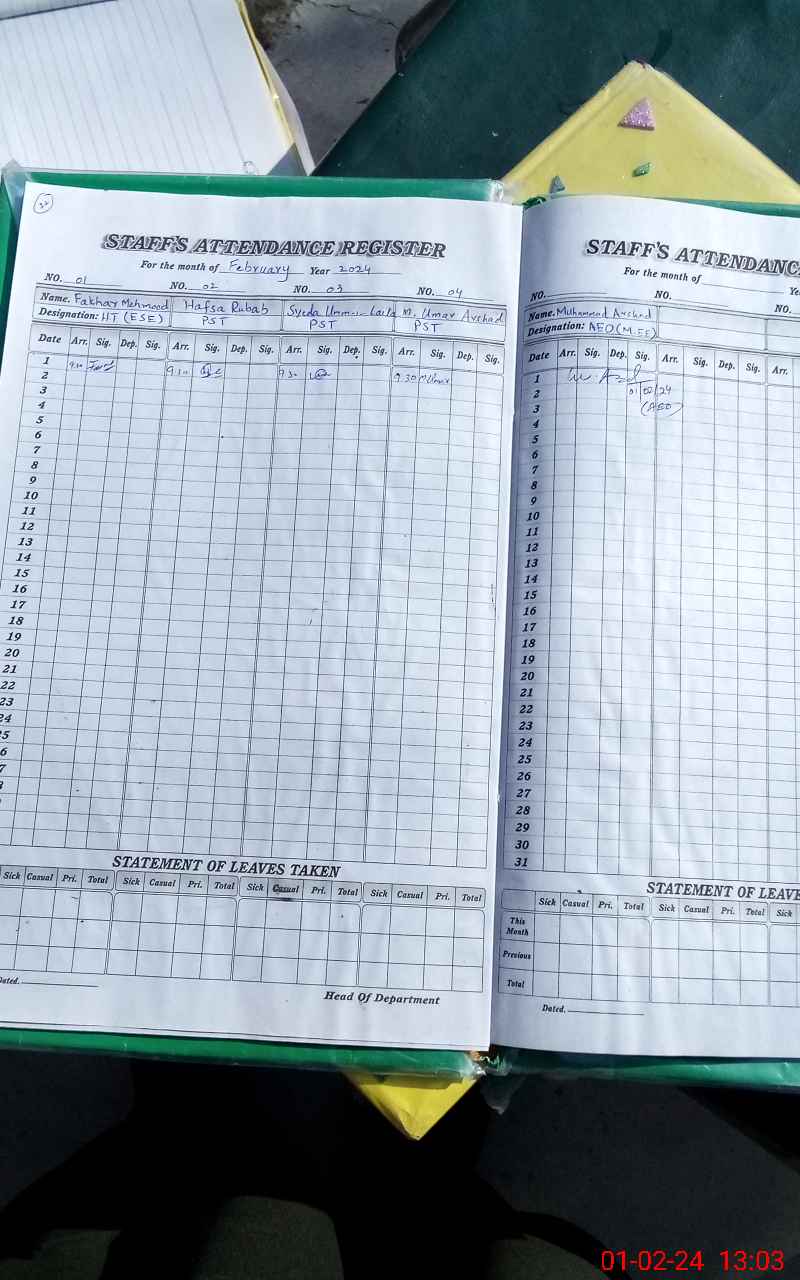 STAFF'S ATTENDANCE REGISTER
For the month of February Year 2024
NO. 01 NO. 02 NO. 03 NO. 04
Name. Fakhar Mehmood Hafsa Rubab Syeda Laila M. Umar Arshad
Designation: HT (ESE) PST PST PST
Date Arr. Sig. Dep. Sig. Arr. Sig. Dep. Sig. Arr. Sig. Dep. Sig. Arr. Sig. Dep. Sig.
1 9.30 9.30 9.30 9.30 M Umar
2
3
4
5
6
7
8
9
10
11
12
13
14
15
16
17
18
19
20
21
22
23
24
5
6
7
STATEMENT OF LEAVES TAKEN
Sick Casual Pri. Total Sick Casual Pri. Total Sick Casual Pri. Total Sick Casual Pri. Total
Dated.
Head Of Department
STAFF'S ATTENDANC
For the month of
NO. NO. NO.
Name. Muhammad Arshad
Designation: AEO (M.EE)
Date Arr. Sig. Dep. Sig. Arr. Sig. Dep. Sig. Arr.
1
2 01/02/24
3 (AEO)
4
5
6
7
8
9
10
11
12
13
14
15
16
17
18
19
20
21
22
23
24
25
26
27
28
29
30
31
STATEMENT OF LEAVE
Sick Casual Pri. Total Sick Casual Pri. Total Sick
This Month
Previous
Total
Dated.
01-02-24 13:03